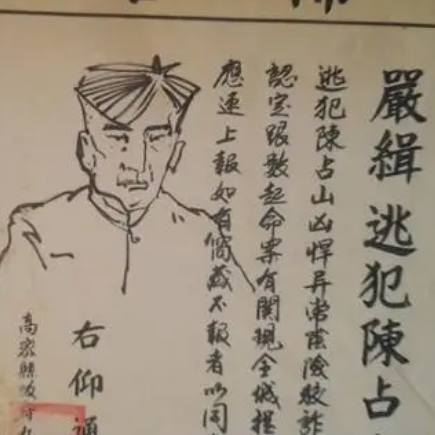 嚴緝逃犯陳占
逃犯陳占山凶悍异常陰險狡詐
認定跟數起命案有関現全城提
應速上報如有窩藏不報者以同
右仰通
高密縣